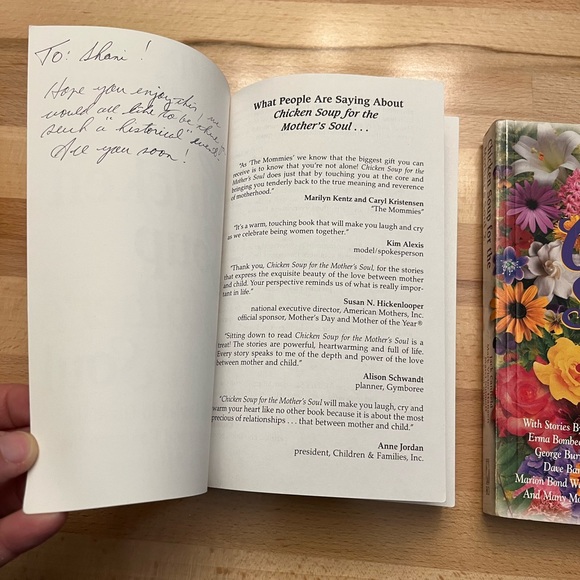 To: Shani!
Hope you enjoy this! We
would all like to be there
such a "historical" event!
See you soon!
What People Are Saying About
Chicken Soup for the
Mother's Soul . . .
"As 'The Mommies' we know that the biggest gift you can
receive is to know that you're not alone! Chicken Soup for the
Mother's Soul does just that by touching you at the core and
bringing you tenderly back to the true meaning and reverence
of motherhood."
Marilyn Kentz and Caryl Kristensen
"The Mommies"
"It's a warm, touching book that will make you laugh and cry
as we celebrate being women together."
Kim Alexis
model/spokesperson
"Thank you, Chicken Soup for the Mother's Soul, for the stories
that express the exquisite beauty of the love between mother
and child. Your perspective reminds us of what is really impor-
tant in life."
Susan N. Hickenlooper
national executive director, American Mothers, Inc.
official sponsor, Mother's Day and Mother of the Year®
"Sitting down to read Chicken Soup for the Mother's Soul is a
treat! The stories are powerful, heartwarming and full of life.
Every story speaks to me of the depth and power of the love
between mother and child."
Alison Schwandt
planner, Gymboree
"Chicken Soup for the Mother's Soul will make you laugh, cry and
warm your heart like no other book because it is about the most
precious of relationships . . . that between mother and child."
Anne Jordan
president, Children & Families, Inc.
With Stories B
Erma Bombe
George Bur
Dave Ba
Marion Bond W
And Many M